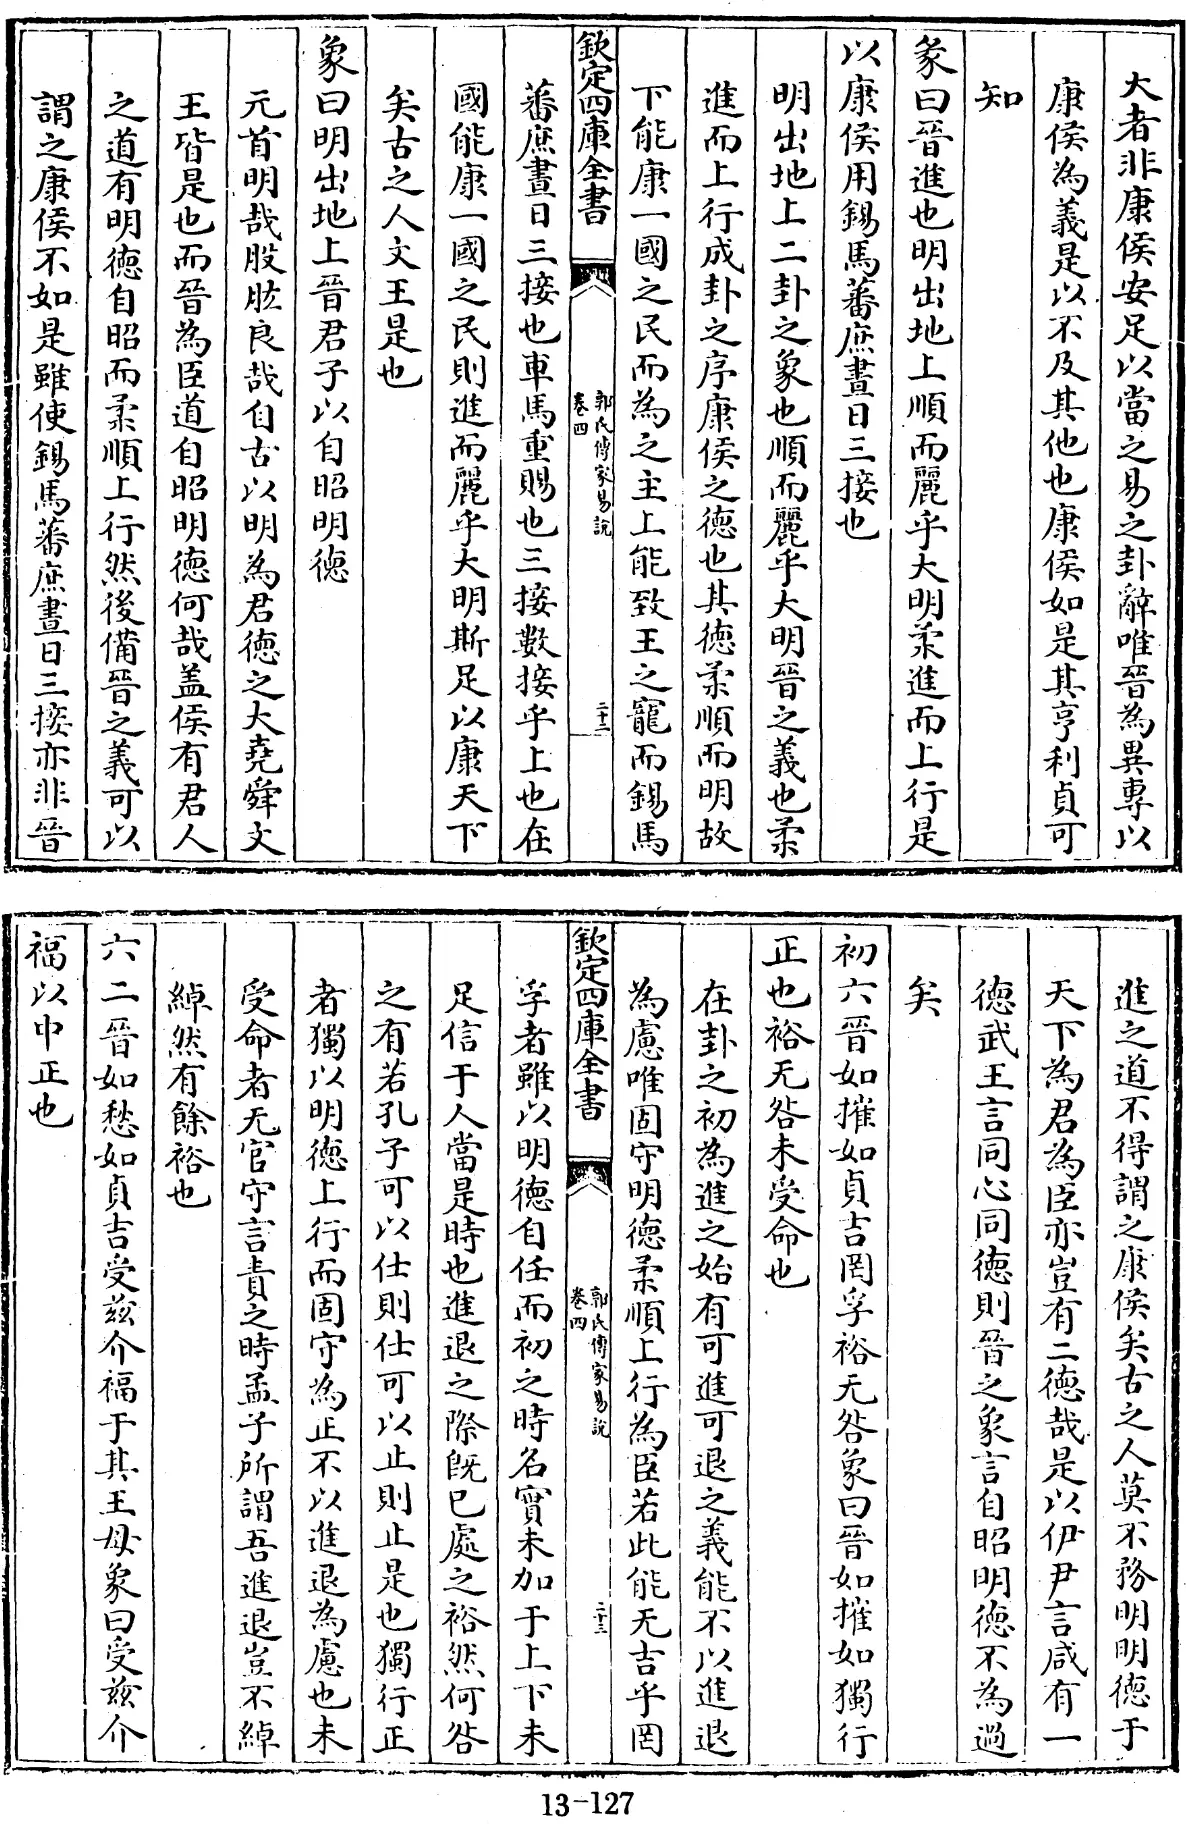 大者非康侯安足以當之易之卦辭唯晉為異專以
康侯為義是以不及其他也康侯如是其亨利貞可
知
彖曰晉進也明出地上順而麗乎大明柔進而上行是
以康侯用錫馬蕃庶晝日三接也
明出地上二卦之象也順而麗乎大明晉之義也柔
進而上行成卦之序康侯之德也其德柔順而明故
下能康一國之民而為之主上能致王之寵而錫馬
欽定四庫全書
郭氏傳家易說
卷四
二十二
蕃庶晝日三接也車馬重賜也三接數接乎上也在
國能康一國之民則進而麗乎大明斯足以康天下
矣古之人文王是也
象曰明出地上晉君子以自昭明德
元首明哉股肱良哉自古以明為君德之大堯舜文
王皆是也而晉為臣道自昭明德何哉盖侯有君人
之道有明德自昭而柔順上行然後備晉之義可以
謂之康侯不如是雖使錫馬蕃庶晝日三接亦非晉
進之道不得謂之康侯矣古之人莫不務明明德于
天下為君為臣亦豈有二德哉是以伊尹言咸有一
德武王言同心同德則晉之象言自昭明德不為過
矣
初六晉如摧如貞吉罔孚裕无咎象曰晉如摧如獨行
正也裕无咎未受命也
在卦之初為進之始有可進可退之義能不以進退
為慮唯固守明德柔順上行為臣若此能无吉乎罔
欽定四庫全書
郭氏傳家易說
卷四
二十三
孚者雖以明德自任而初之時名實未加于上下未
足信于人當是時也進退之際旣已處之裕然何咎
之有若孔子可以仕則仕可以止則止是也獨行正
者獨以明德上行而固守為正不以進退為慮也未
受命者无官守言責之時孟子所謂吾進退豈不綽
綽然有餘裕也
六二晉如愁如貞吉受兹介福于其王母象曰受兹介
福以中正也
13-127